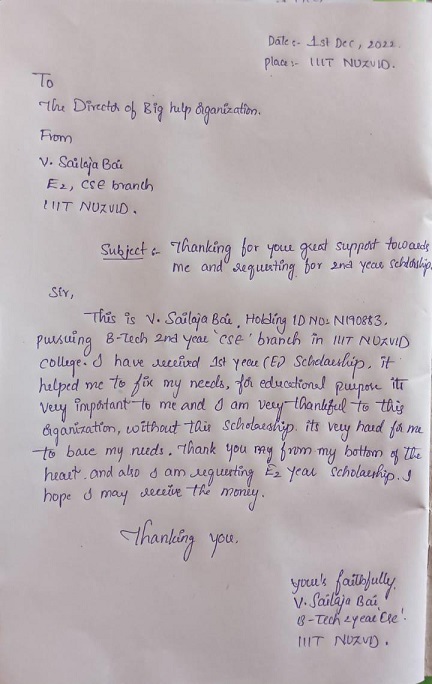 Date :- 1st Dec, 2022.
place :- IIIT NUZVID.
To
The Director of Big help Organization.
From
V. Sailaja Bai
E2, CSE branch
IIIT NUZVID.
Subject :- Thanking for your great support towards
me and requesting for 2nd year scholarship.
Sir,
This is V. Sailaja Bai, Holding ID NO: N190883.
pursuing B-Tech 2nd year 'CSE' branch in IIIT NUZVID
college. I have received 1st year (E1) Scholarship. it
helped me to fix my needs, for educational purpose its
very important to me and I am very thankful to this
Organization, without this Scholarship. its very hard for me
to bare my needs. Thank you my from my bottom of the
heart. and also I am requesting E2 year scholarship. I
hope I may receive the money.
Thanking you.
your's faithfully.
V. Sailaja Bai
B-Tech 2year 'CSE'.
IIIT NUZVID.